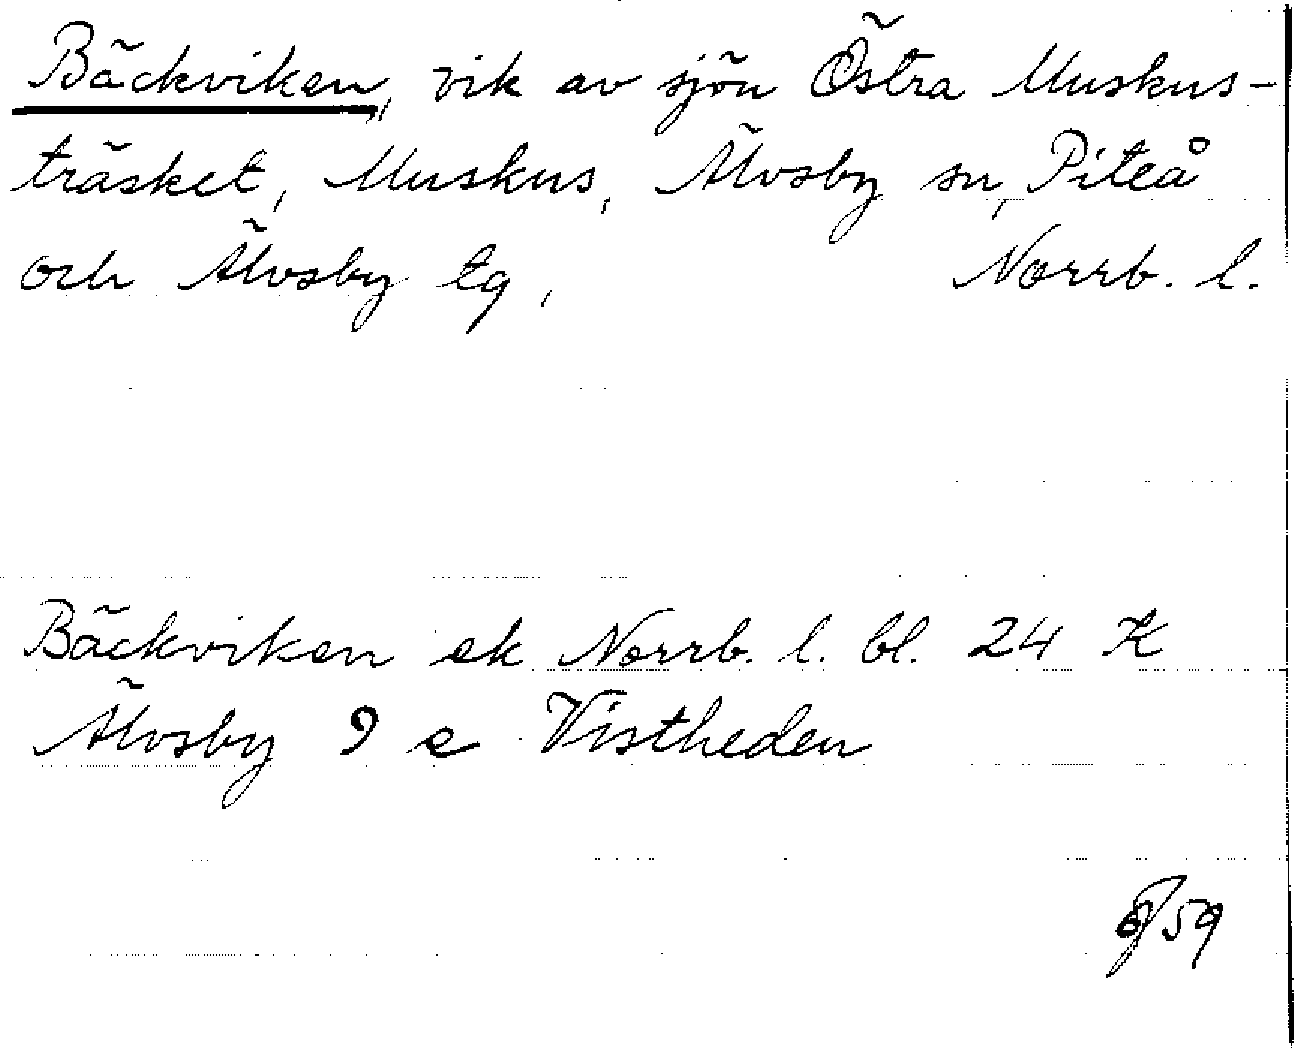 Bäckviken, vik av sjön Östra Muskus-
träsket, Muskus, Älvsby sn, Piteå
och Älvsby tg, Norrb. l.
Bäckviken ek Norrb. l. bl. 24 K
Älvsby 9 e Vistheden
59